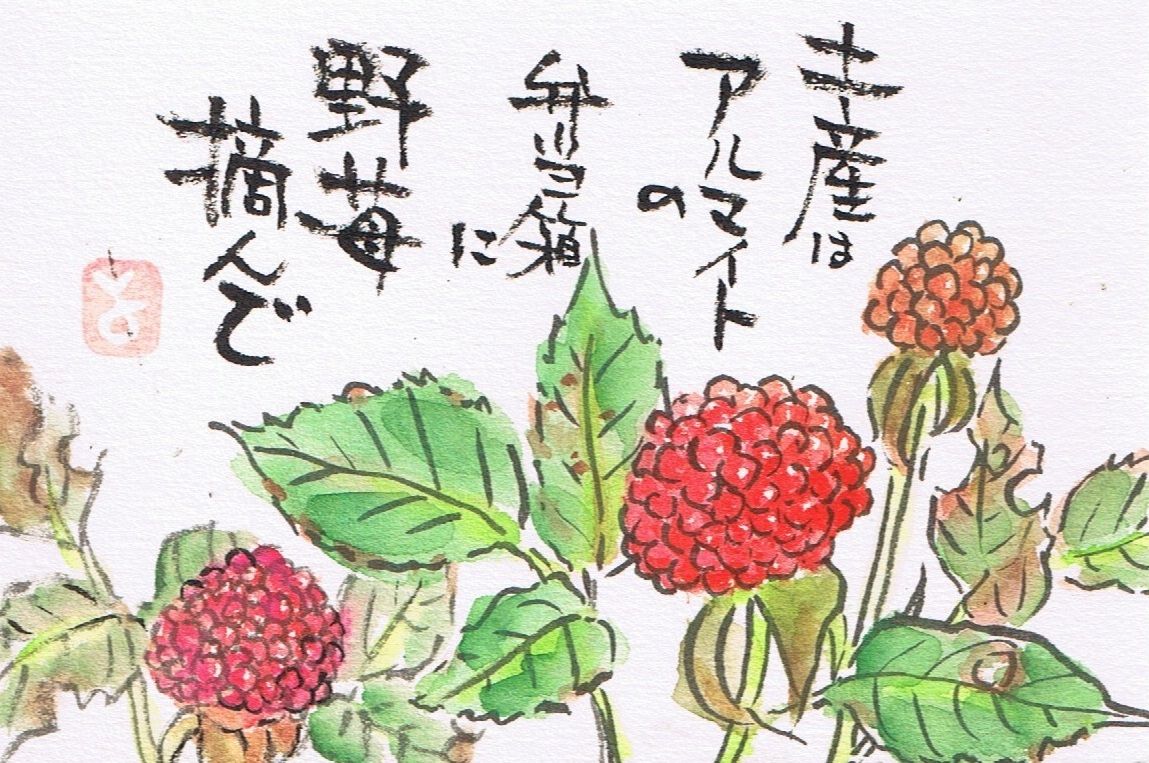 土産は
アルマイトの
弁当箱に
野苺
摘んで